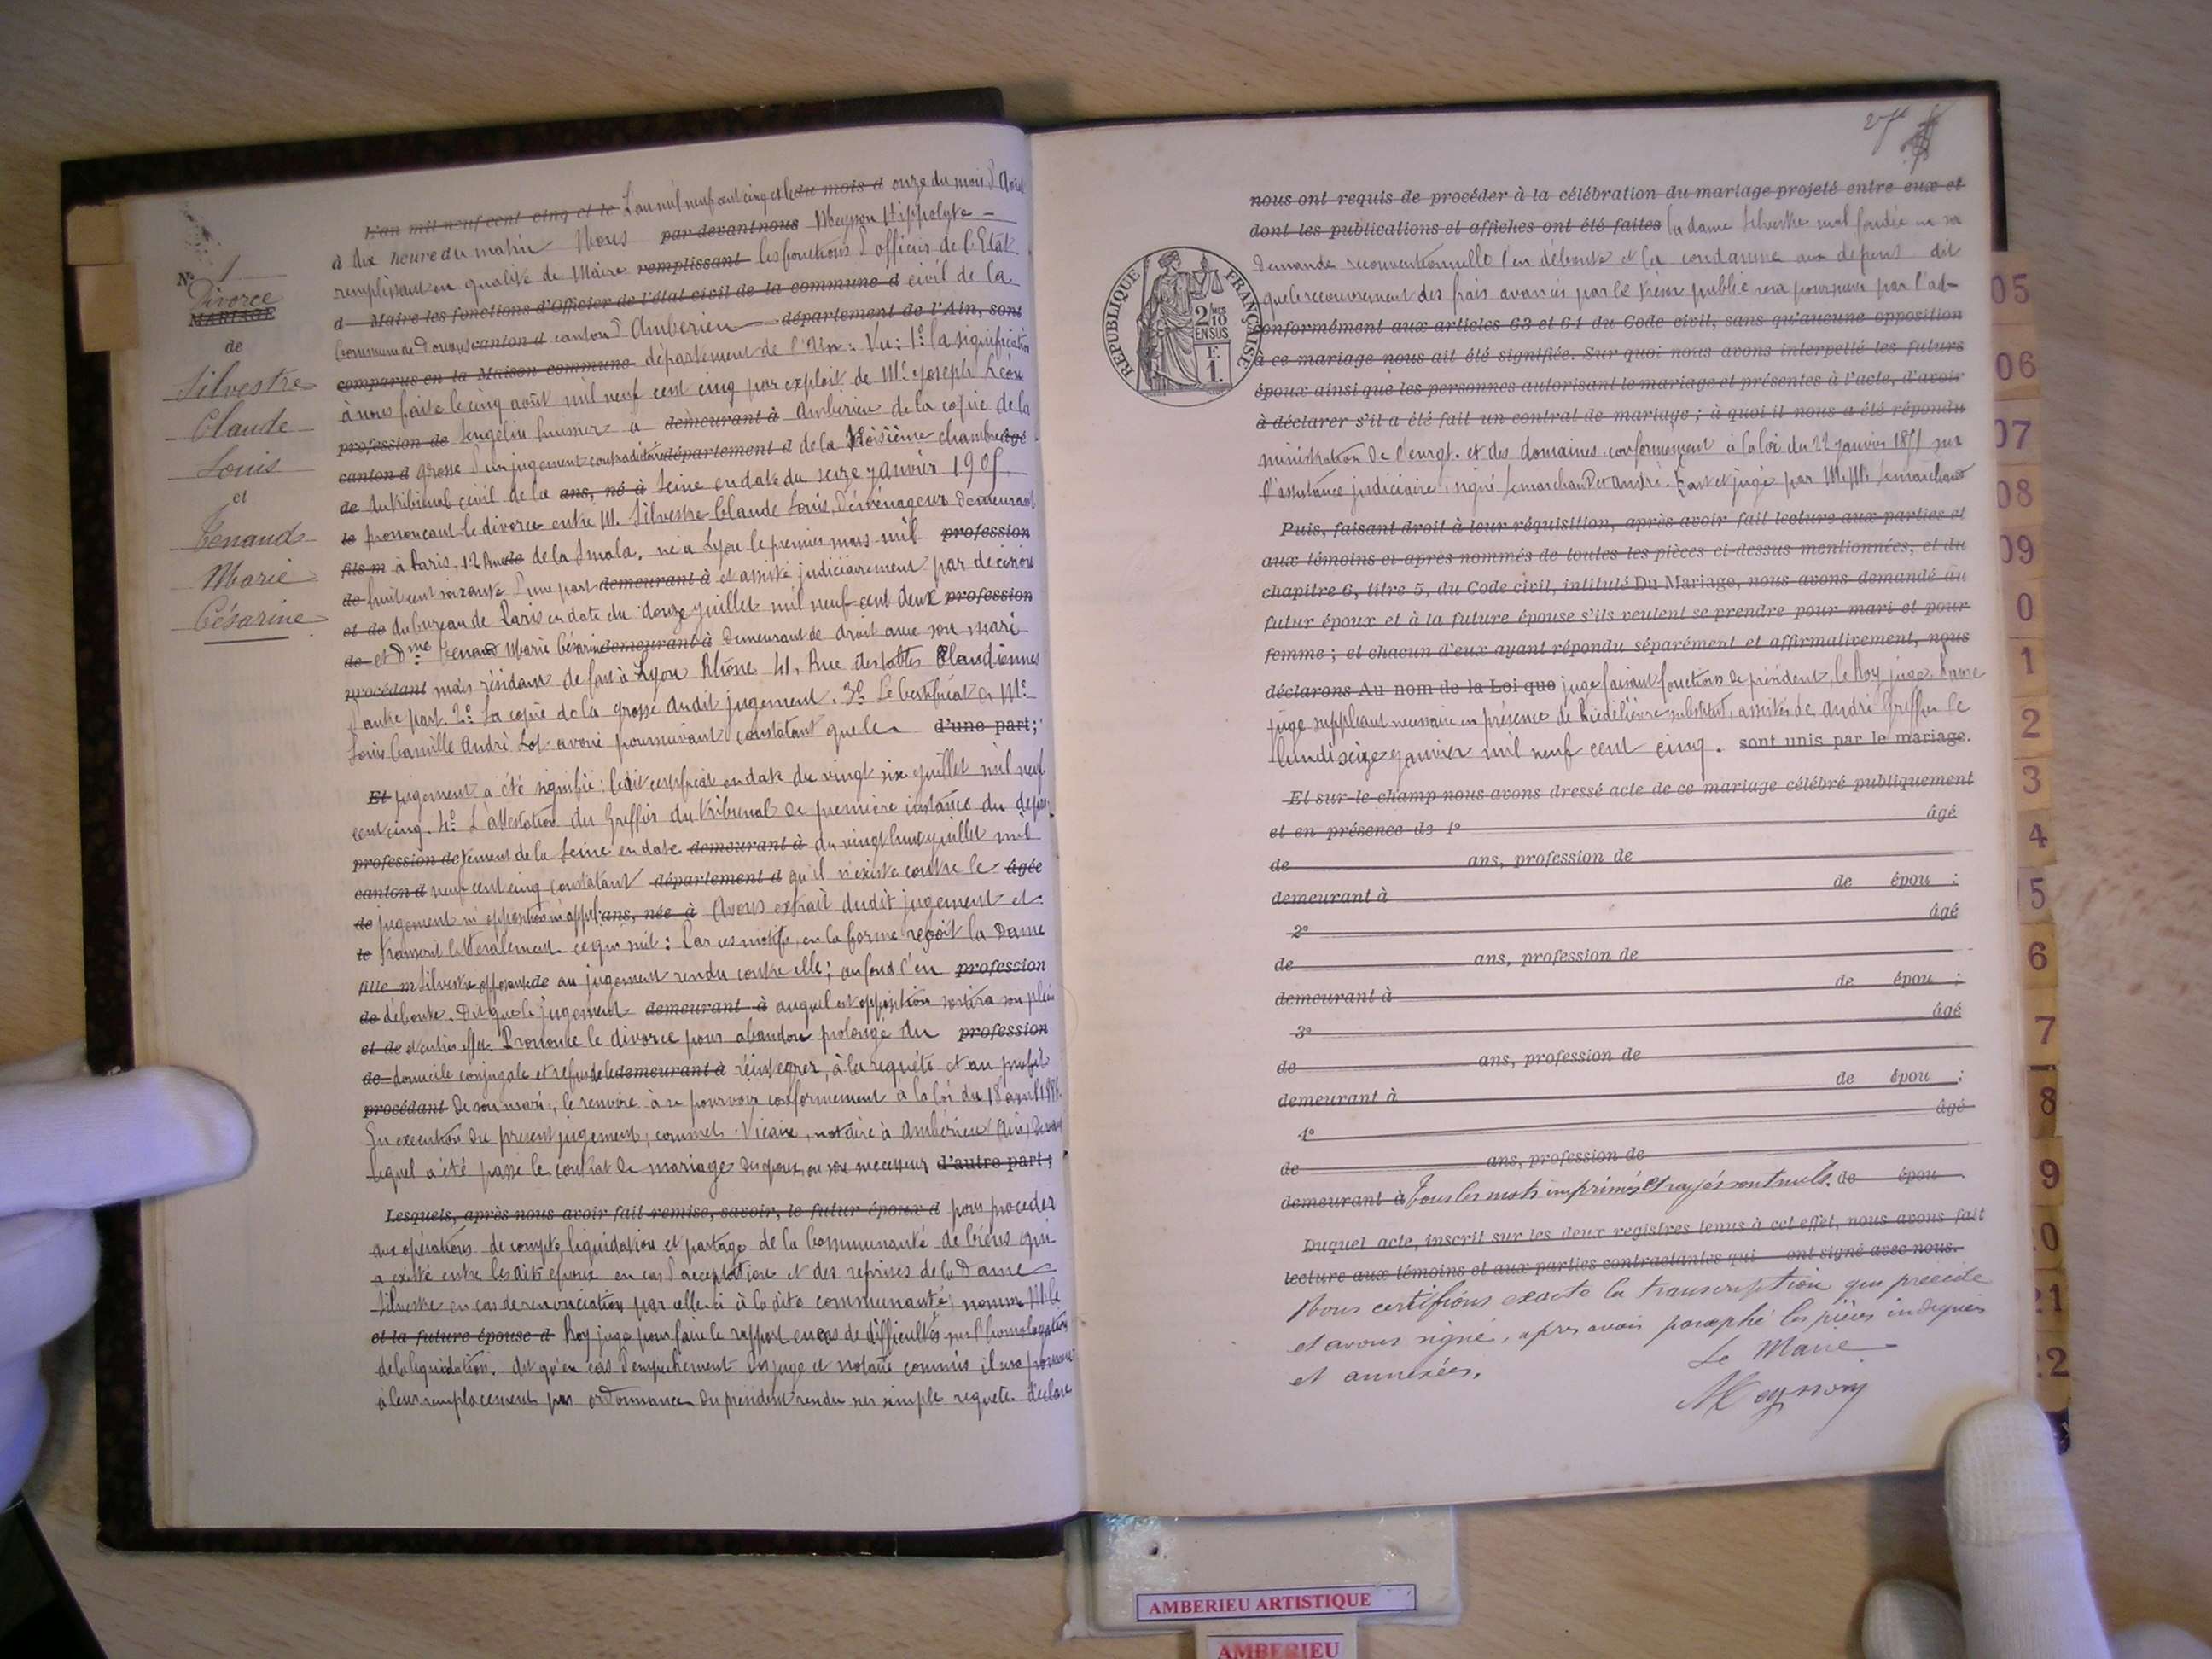 Nº 1
Divorce
MARIAGE
de
Silvestre
Claude
Louis
et
Tenaud
Marie
Césarine
L'an mil neuf cent cinq et le L'an mil neuf cent cinq et le du mois d onze du mois d'Août
à dix heure du matin Nous par devant nous Meysson Hippolyte
remplissant en qualité de Maire remplissant les fonctions d'officier de l'Etat
d Maire les fonctions d'Officier de l'état civil de la commune d civil de la
Commune de Douvres canton d canton d'Amberieu département de l'Ain, sont
comparus en la Maison commune département de l'Ain : Vu : 1º la signification
à nous faite le cinq août mil neuf cent cinq par exploit de Mº Joseph Léon
profession de huissier a demeurant à Amberieu de la copie de la
canton d grosse d'un jugement contradictoire département d de la troisième chambre âgé
de du tribunal civil de la ans, né à Seine en date du seize janvier 1905
le prononçant le divorce entre M. Silvestre Claude Louis, déménageur demeurant
fils m à Paris, 12 Rue de de la Smala, né à Lyon le premier mars mil profession
de huit cent soixante d'une part demeurant à et assisté judiciairement par décision
et de du bureau de Paris en date du douze juillet mil neuf cent deux profession
de et Dme Tenaud Marie Césarine demeurant à demeurant de droit avec son mari
procédant mais résidant de fait à Lyon Rhône 41, Rue des tables Claudiennes
d'autre part. 2º La copie de la grosse dudit jugement. 3º Le Certificat de Mº
Louis Camille André Lot avoué poursuivant constatant que le d'une part;
Et jugement a été signifié : ledit certificat en date du vingt six juillet mil neuf
cent cinq. 4º L'attestation du Greffier du tribunal de première instance du dépar-
profession de tement de la Seine en date demeurant à du vingt huit juillet mil
canton d neuf cent cinq constatant département d qu'il n'existe contre le âgée
de jugement ni opposition ni appel. ans, née à Avons extrait dudit jugement et
le transcrit littéralement ce qui suit : Par ces motifs, en la forme reçoit la Dame
fille m Silvestre opposante de au jugement rendu contre elle ; au fond l'en profession
de déboute. Dit que le jugement demeurant à auquel est opposition sortira son plein
et de et entier effet. Prononce le divorce pour abandon prolongé du profession
de domicile conjugale et refus de le demeurant à réintégrer, à la requête et au profit
procédant de son mari, le renvoie à se pourvoir conformement à la loi du 18 avril 1886.
En execution du present jugement, commet Vicaire, notaire à Ambérieu (Ain) devant
lequel a été passé le contrat de mariage des époux, ou son successeur d'autre part;
Lesquels, après nous avoir fait remise, savoir, le futur époux d pour procéder
aux opérations de compte, liquidation et partage de la Communauté de biens qui
a existé entre lesdits époux en cas d'acceptation et des reprises de la Dame
Silvestre en cas de renonciation par celle-ci à la dite communauté ; nomme M. le
et la future épouse d Roy juge pour faire le rapport en cas de difficultés sur l'homologation
de la liquidation. dit qu'en cas d'empechement des juge et notaire commis il sera pourvu
à leur remplacement par ordonnance du président rendu sur simple requête. déclare
nous ont requis de procéder à la célébration du mariage projeté entre eux et
dont les publications et affiches ont été faites la dame Silvestre mal fondée en sa
demande reconventionnelle l'en déboute et la condamne aux depens dit
que le recouvrement des frais avancés par le trésor public sera poursuivi par l'ad-
conformément aux articles 63 et 64 du Code civil, sans qu'aucune opposition
à ce mariage nous ait été signifiée. Sur quoi nous avons interpellé les futurs
époux ainsi que les personnes autorisant le mariage et présentes à l'acte, d'avoir
à déclarer s'il a été fait un contrat de mariage ; à quoi il nous a été répondu
ministration de l'enregt. et des domaines conformement à la loi du 22 janvier 1851 sur
l'assistance judiciaire ; signé Lemarchand et André. Fait et jugé par M.M. Lemarchand
Puis, faisant droit à leur réquisition, après avoir fait lecture aux parties et
aux témoins ci-après nommés de toutes les pièces ci-dessus mentionnées, et du
chapitre 6, titre 5, du Code civil, intitulé Du Mariage, nous avons demandé au
futur époux et à la future épouse s'ils veulent se prendre pour mari et pour
femme ; et chacun d'eux ayant répondu séparément et affirmativement, nous
déclarons Au nom de la Loi que juge faisant fonctions de président, le Roy juge
juge suppléant necessaire en présence de substitut, assistés de André Greffier le
lundi seize janvier mil neuf cent cinq. sont unis par le mariage.
Et sur-le-champ nous avons dressé acte de ce mariage célébré publiquement
et en présence de 1º âgé
de ans, profession de
demeurant à de épou ;
2º âgé
de ans, profession de
demeurant à de épou ;
3º âgé
de ans, profession de
demeurant à de épou ;
4º âgé
de ans, profession de
demeurant à Tous les mots imprimés et rayés sont nuls. de épou .
Duquel acte, inscrit sur les deux registres tenus à cet effet, nous avons fait
lecture aux témoins et aux parties contractantes qui ont signé avec nous.
Nous certifions exacte la transcription qui précède
et avons signé, après avoir paraphé les pièces indiquées
et annexées.
Le Maire
Meysson
REPUBLIQUE FRANÇAISE
2/10 EN SUS
F.
1.
05
06
07
08
09
0
1
2
3
4
5
6
7
8
9
0
21
22
AMBERIEU ARTISTIQUE
AMBERIEU